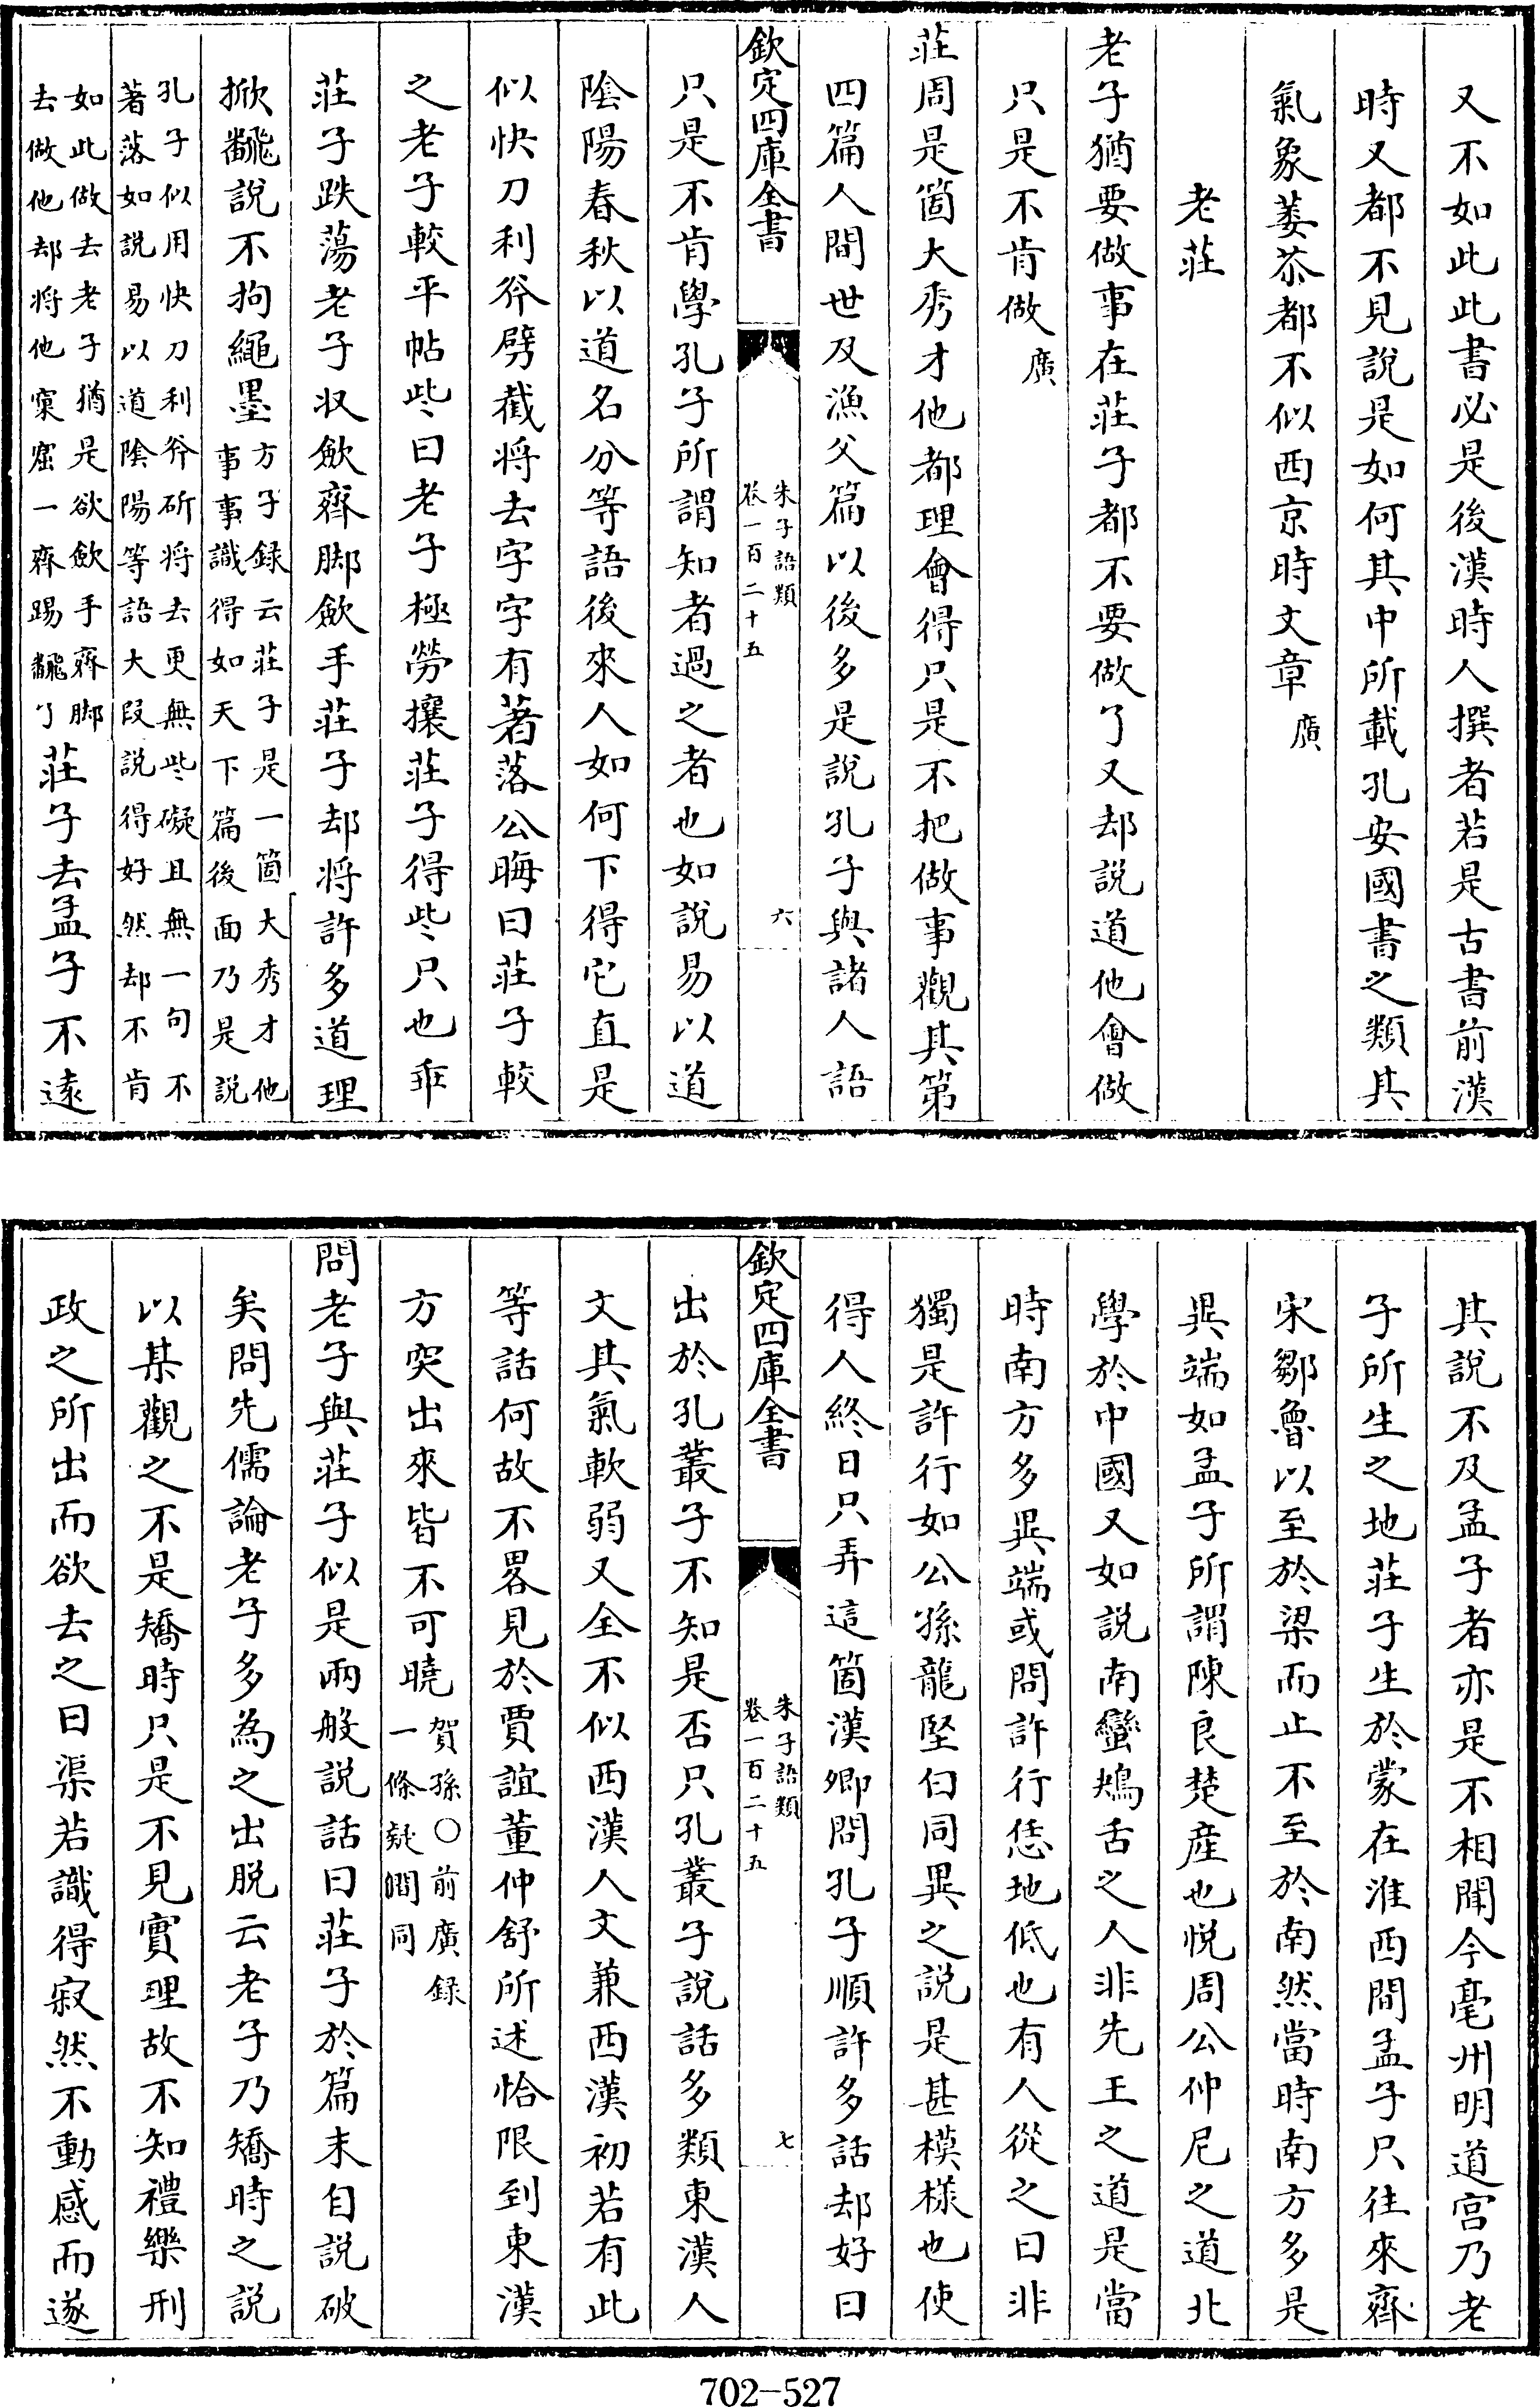 又不如此此書必是後漢時人撰者若是古書前漢
時又都不見說是如何其中所載孔安國書之類其
氣象萎苶都不似西京時文章廣
老莊
老子猶要做事在莊子都不要做了又却說道他會做
只是不肯做廣
莊周是箇大秀才他都理會得只是不把做事觀其第
四篇人間世及漁父篇以後多是說孔子與諸人語
欽定四庫全書
朱子語類
卷一百二十五
六
只是不肯學孔子所謂知者過之者也如說易以道
陰陽春秋以道名分等語後來人如何下得它直是
似快刀利斧劈截將去字字有著落公晦曰莊子較
之老子較平帖些曰老子極勞攘莊子得些只也乖
莊子跌蕩老子收斂齊脚斂手莊子却將許多道理
掀飜說不拘繩墨方子録云莊子是一箇大秀才他
事事識得如天下篇後面乃是説
孔子似用快刀利斧斫將去更無些礙且無一句不
著落如説易以道陰陽等語大段說得好然却不肯
如此做去老子猶是欲斂手齊脚
去做他却將他窠窟一齊踢飜了莊子去孟子不遠
其說不及孟子者亦是不相聞今亳州明道宫乃老
子所生之地莊子生於蒙在淮西間孟子只往來齊
宋鄒魯以至於梁而止不至於南然當時南方多是
異端如孟子所謂陳良楚産也悅周公仲尼之道北
學於中國又如說南蠻鴃舌之人非先王之道是當
時南方多異端或問許行恁地低也有人從之曰非
獨是許行如公孫龍堅白同異之說是甚模樣也使
得人終日只弄這箇漢卿問孔子順許多話却好曰
欽定四庫全書
朱子語類
卷一百二十五
七
出於孔叢子不知是否只孔叢子說話多類東漢人
文其氣軟弱又全不似西漢人文兼西漢初若有此
等話何故不畧見於賈誼董仲舒所述恰限到東漢
方突出來皆不可曉賀孫〇前廣録
一條疑聞同
問老子與莊子似是兩般說話曰莊子於篇末自說破
矣問先儒論老子多為之出脱云老子乃矯時之說
以某觀之不是矯時只是不見實理故不知禮樂刑
政之所出而欲去之曰渠若識得寂然不動感而遂
702-527